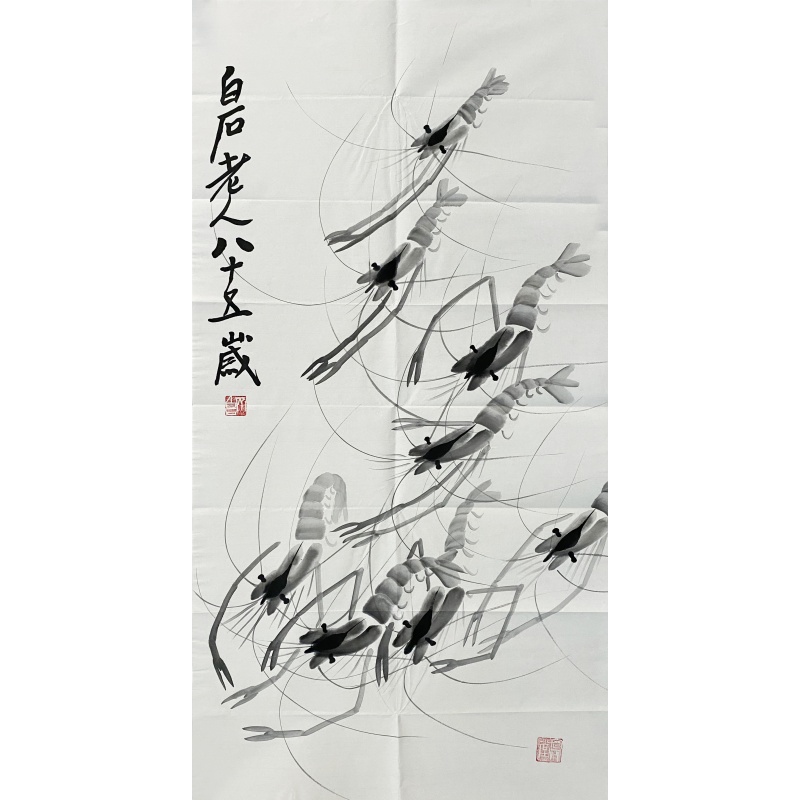 白石老人八十五歲